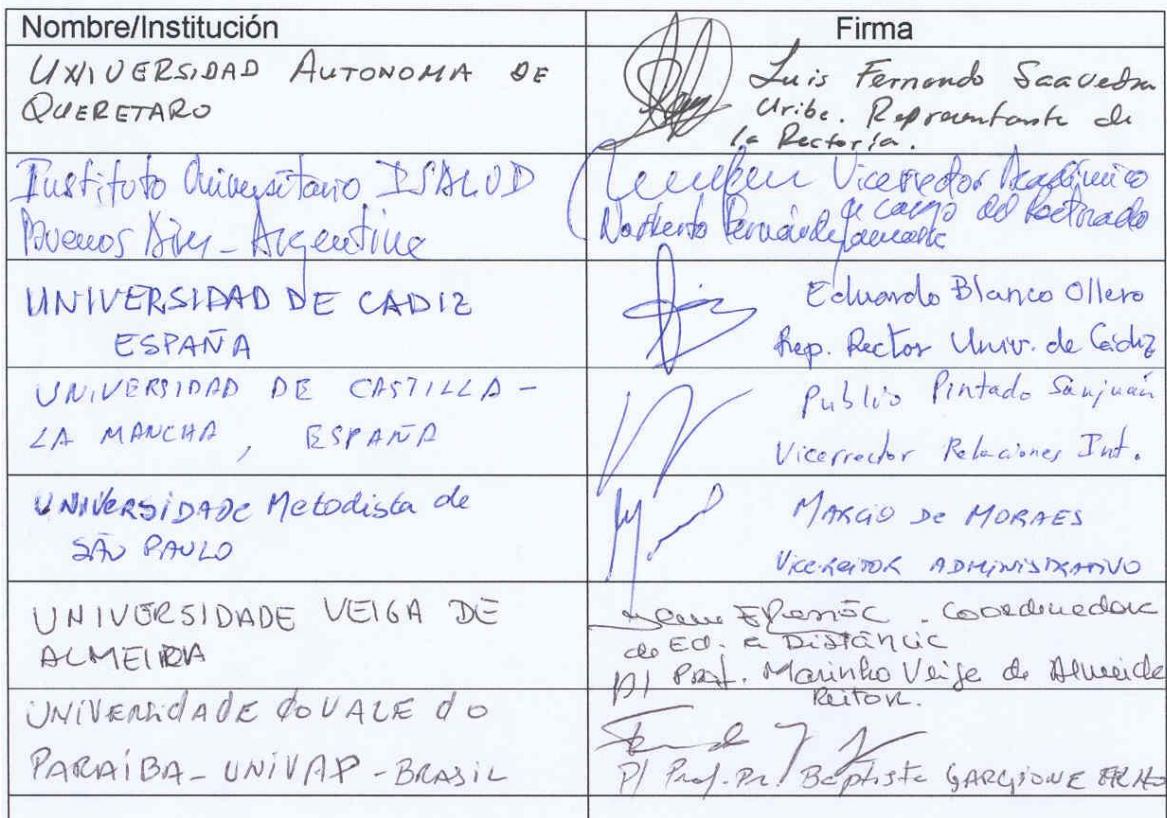 Nombre/Institución
Firma
UNIVERSIDAD AUTONOMA DE
QUERETARO
Luis Fernando Saavedra
Uribe. Representante de
la Rectoría.
Instituto Universitario ISALUD
Buenos Aires - Argentina
Vicerrector Académico
a cargo del Rectorado
Norberto Fernández Lamarra
UNIVERSIDAD DE CADIZ
ESPAÑA
Eduardo Blanco Ollero
Rep. Rector Univ. de Cádiz
UNIVERSIDAD DE CASTILLA-
LA MANCHA, ESPAÑA
Publio Pintado Sanjuán
Vicerrector Relaciones Int.
UNIVERSIDADE Metodista de
SÃO PAULO
MARCIO DE MORAES
VICE-REITOR ADMINISTRATIVO
UNIVERSIDADE VEIGA DE
ALMEIDA
Coordenadora
de Ed. a Distância
P/ Prof. Marinho Veiga de Almeida
Reitor.
UNIVERSIDADE do VALE do
PARAÍBA - UNIVAP - BRASIL
P/ Prof. Dr. Baptista GARGIONE FILHO